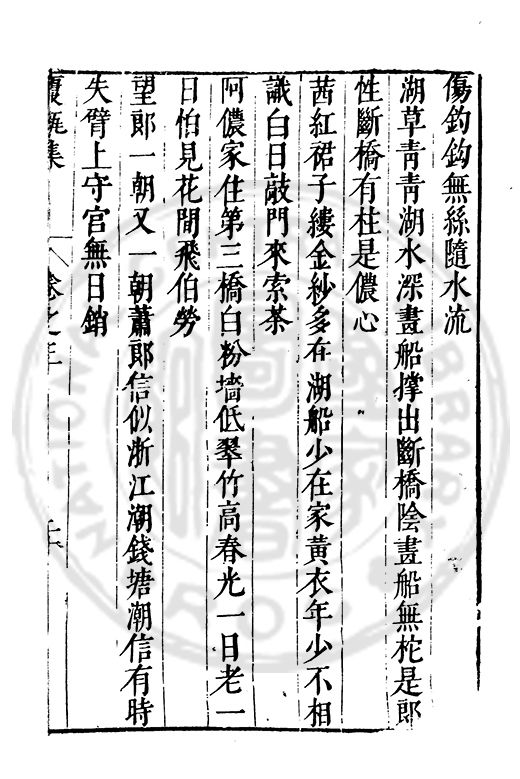 傷釣鈎無絲隨水流
湖草青青湖水深畫船撐出斷橋陰畫船無柁是郎
性斷橋有柱是儂心
茜紅裙子縷金紗多在湖船少在家黃衣年少不相
識白日敲門來索茶
阿儂家住第三橋白粉墻低翠竹高春光一日老一
日怕見花間飛伯勞
望郎一朝又一朝蕭郎信似浙江潮錢塘潮信有時
失臂上守宮無日銷
集 卷之三